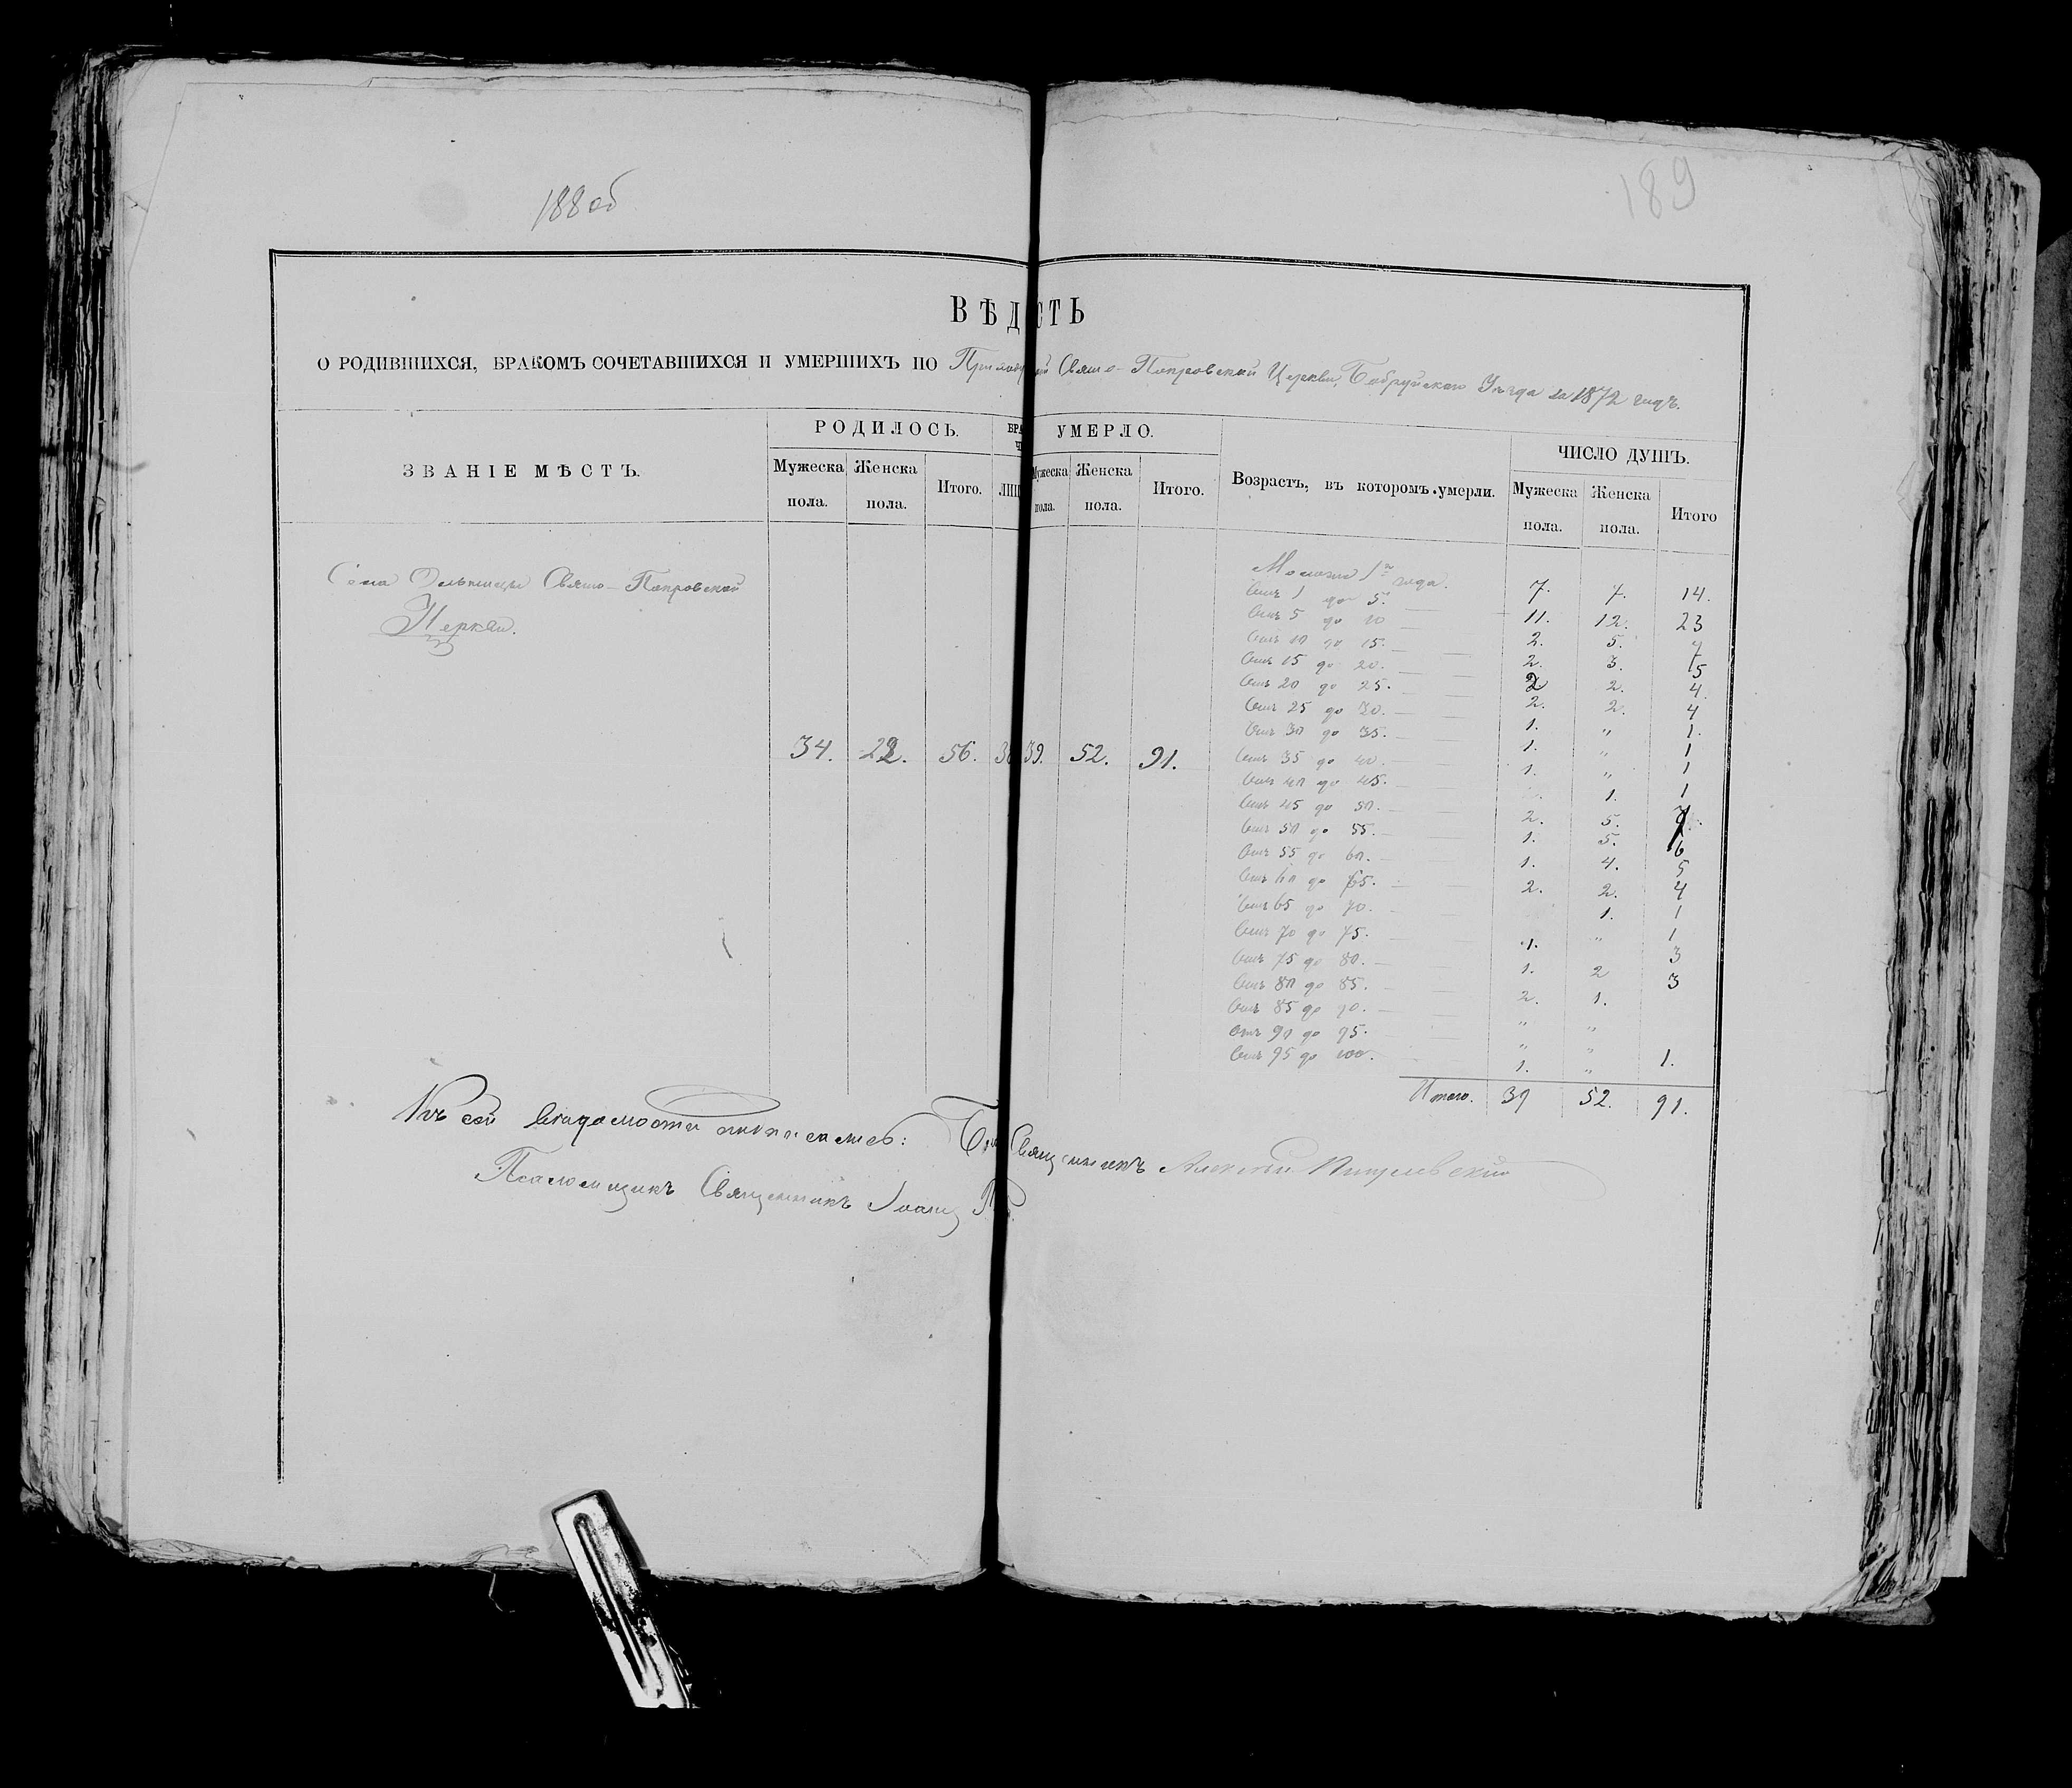 188 об
189
ВѢД СТЬ
О РОДИВШИХСЯ, БРАКОМЪ СОЧЕТАВШИХСЯ И УМЕРШИХЪ ПО Свято-Покровской Церкви, Бобруйскаго Уѣзда за 1872 годъ.
ЗВАНІЕ МѢСТЪ.
РОДИЛОСЬ.
Мужеска пола.
Женска пола.
Итого.
БРА
Ч
ЛИЦ
УМЕРЛО.
Мужеска пола.
Женска пола.
Итого.
Возрастъ, въ которомъ умерли.
ЧИСЛО ДУШЪ.
Мужеска пола.
Женска пола.
Итого
Села Свято-Покровской
Церкви.
34. 22. 56. 39. 52. 91.
1го года. 7. 7. 14.
Отъ 1 до 5. 11. 12. 23
Отъ 5 до 10 2. 5. 7
Отъ 10 до 15. 2. 3. 5
Отъ 15 до 20. 2 2. 4.
Отъ 20 до 25. 2. 2. 4
Отъ 25 до 30. 1. „ 1.
Отъ 30 до 35. 1. „ 1
Отъ 35 до 40. 1. „ 1
Отъ 40 до 45. 1. 1
Отъ 45 до 50. 2. 5. 7.
Отъ 50 до 55. 1. 5. 6
Отъ 55 до 60. 1. 4. 5
Отъ 60 до 65. 2. 2. 4
Отъ 65 до 70. 1. 1
Отъ 70 до 75. 1. „ 1
Отъ 75 до 80. 1. 2 3
Отъ 80 до 85. 2. 1. 3
Отъ 85 до 90. „ „
Отъ 90 до 95. „ „
Отъ 95 до 100. 1. „ 1.
Итого. 39 52. 91.
Къ сей вѣдомости подписались: Священникъ Алексѣй
Псаломщикъ Священникъ Іоаннъ